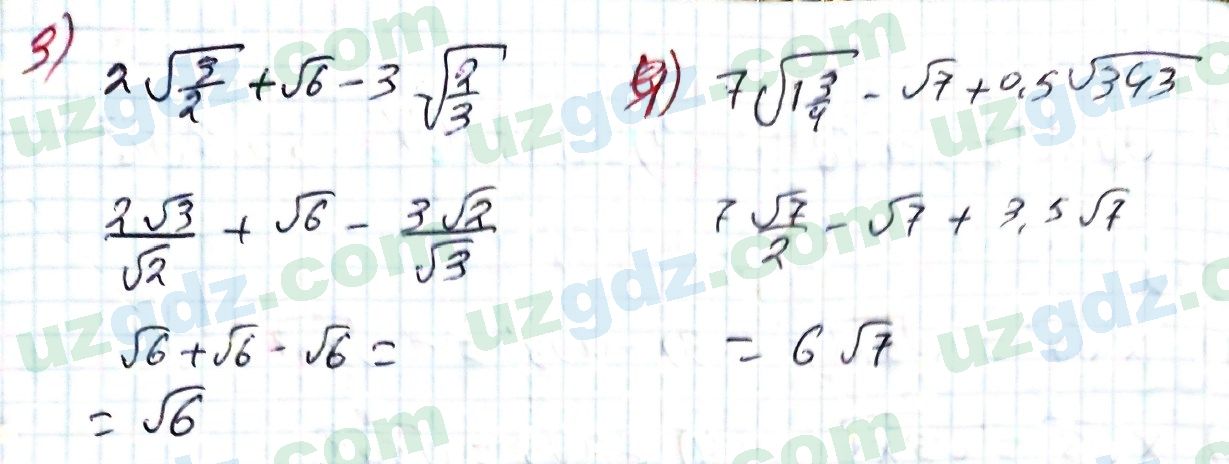 3) 2√(3/2) + √6 - 3√(2/3)
2√3/√2 + √6 - 3√2/√3
√6 + √6 - √6 =
= √6
4) 7√(1 3/4) - √7 + 0,5√343
7 √7/2 - √7 + 3,5√7
= 6√7
uzgdz.com
uzgdz.com
uzgdz.com
uzgdz.com
uzgdz.com
uzgdz.com